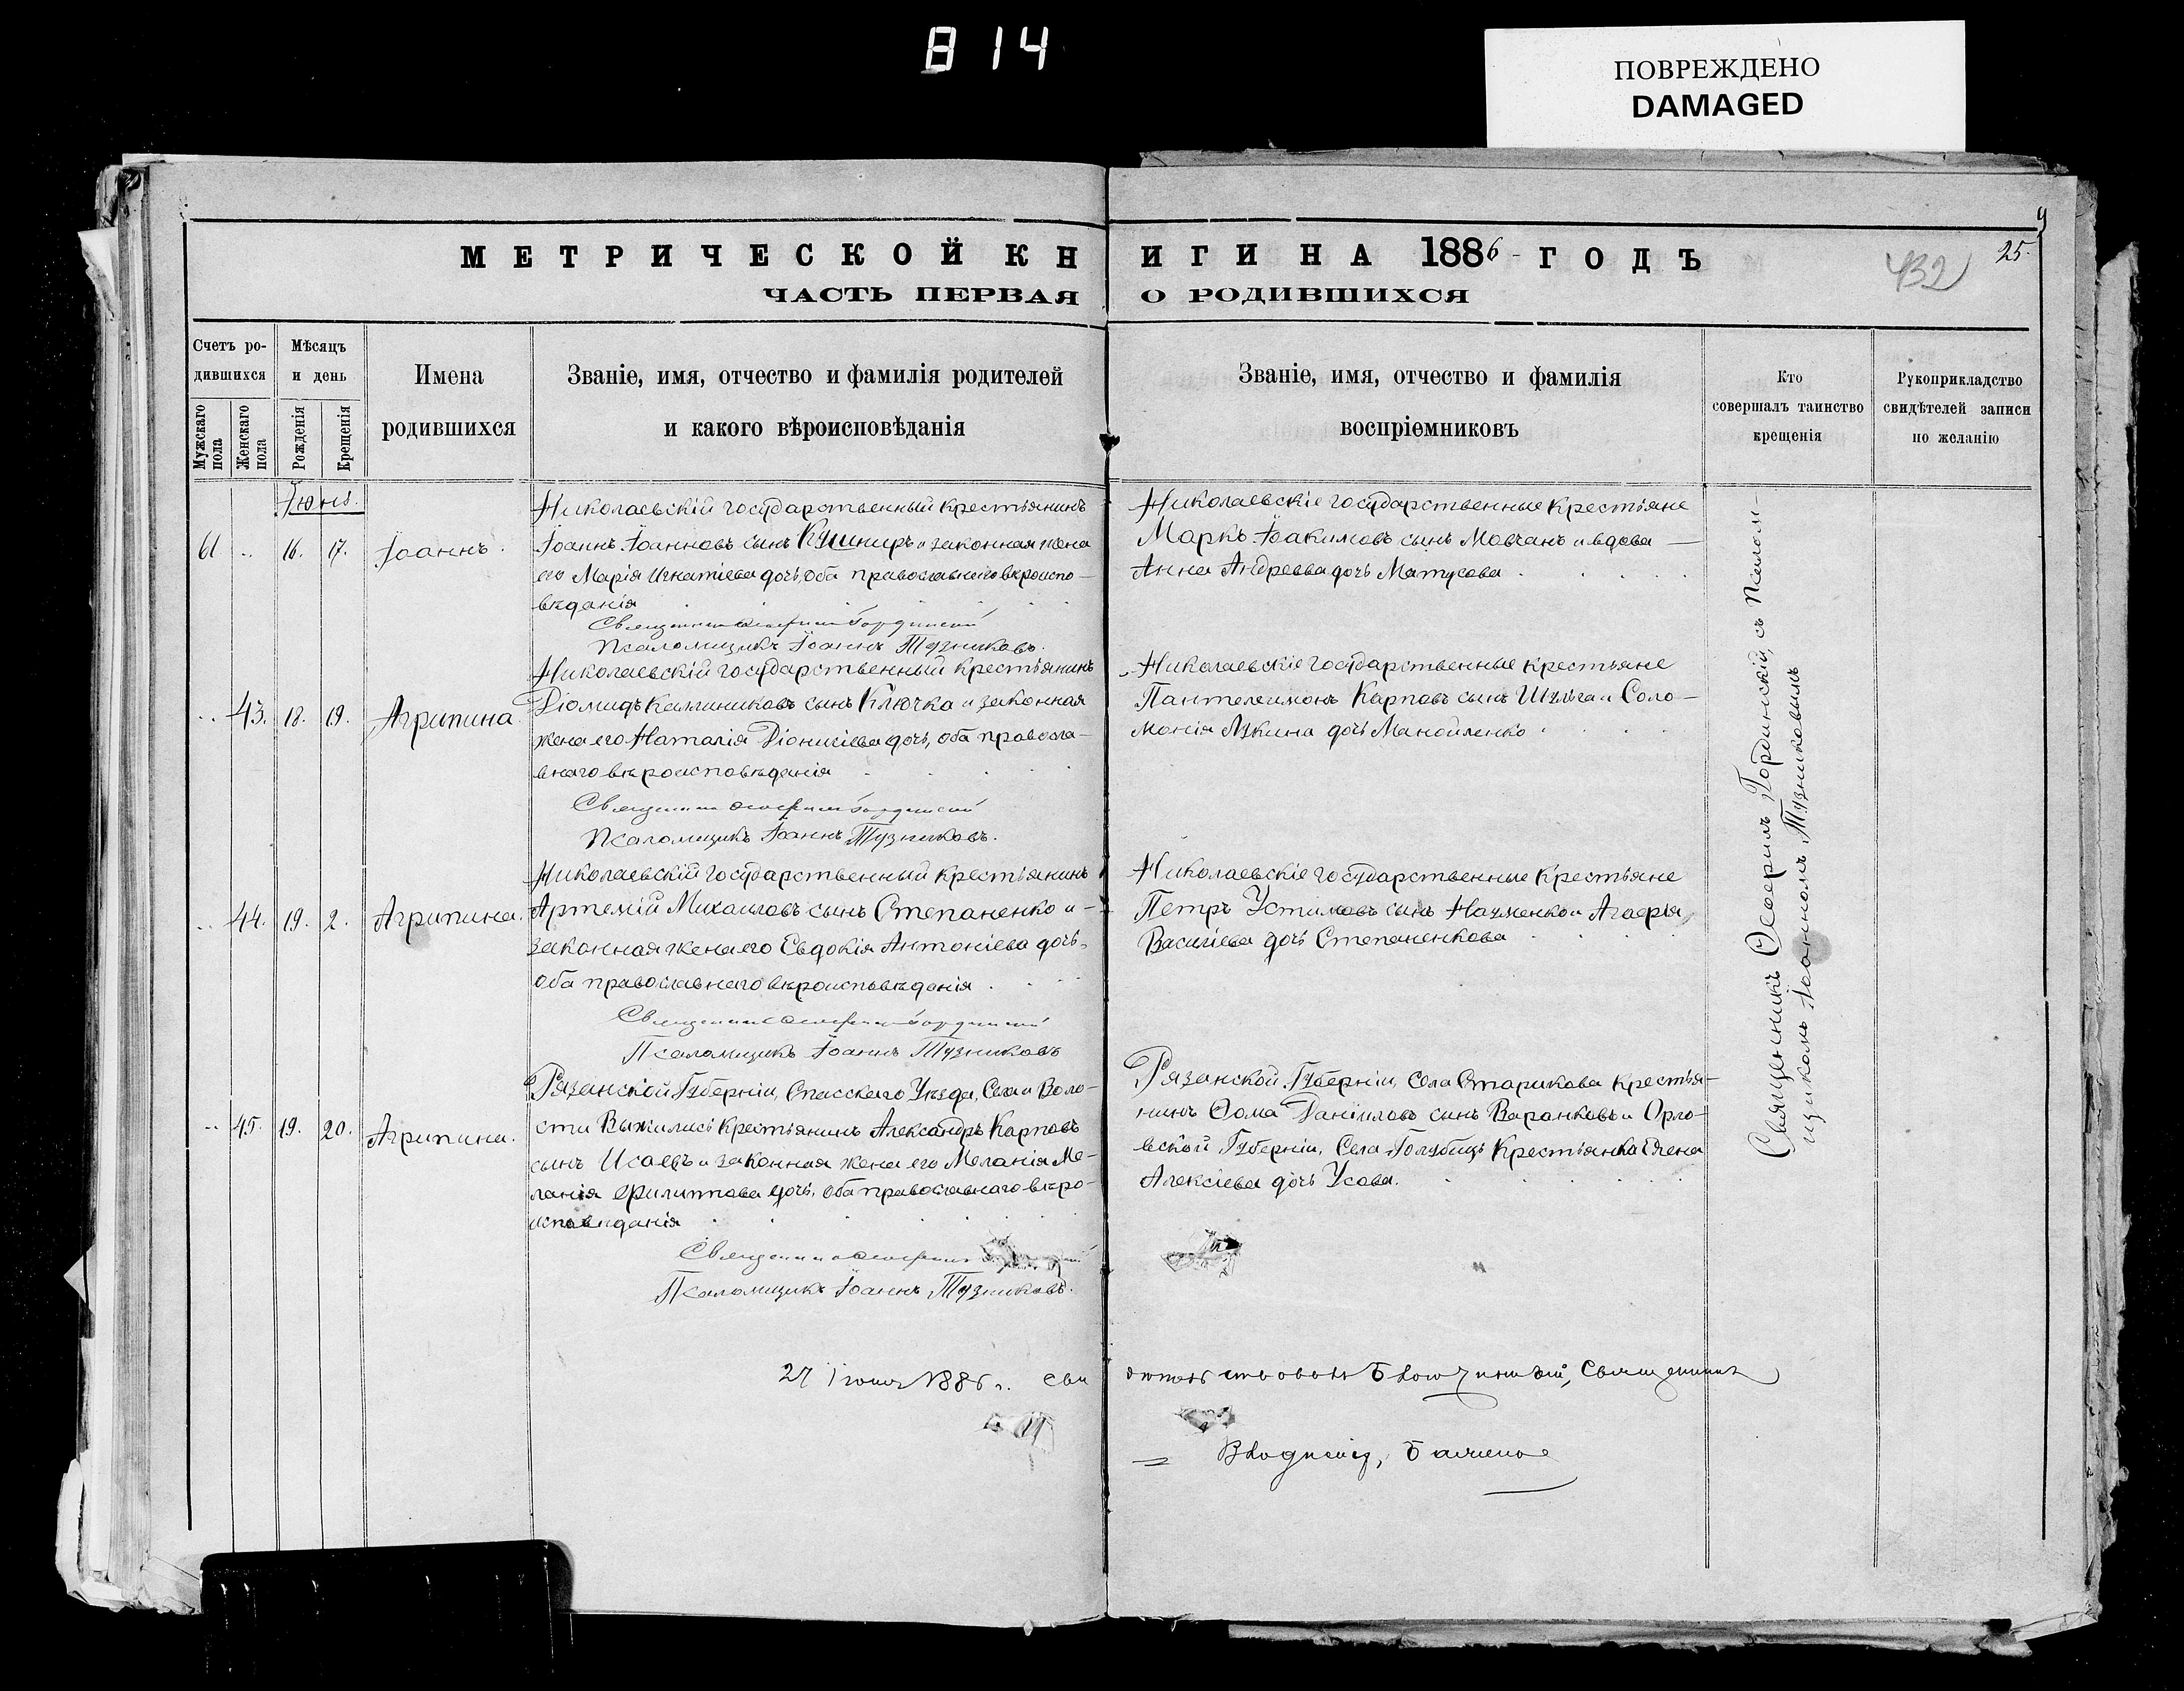 814
ПОВРЕЖДЕНО
DAMAGED
МЕТРИЧЕСКОЙ КНИГИ НА 1886 ГОДЪ
432
25.
ЧАСТЬ ПЕРВАЯ О РОДИВШИХСЯ
Счетъ родившихся
Мужскаго пола
Женскаго пола
Мѣсяцъ и день
Рожденія
Крещенія
Имена родившихся
Званіе, имя, отчество и фамилія родителей
и какого вѣроисповѣданія
Званіе, имя, отчество и фамилія
воспріемниковъ
Кто
совершалъ таинство
крещенія
Рукоприкладство
свидѣтелей записи
по желанію
Іюнь.
61 .. 16. 17. Іоаннъ.
Николаевскій государственный крестьянинъ
Іоаннъ Іоанновъ сынъ Кушниръ и законная жена
его Марія Игнатіева дочь, оба православнаго вѣроиспо-
вѣданія
Псаломщикъ Іоаннъ Тузниковъ.
Николаевскіе государственные крестьяне
Маркъ Іоакимовъ сынъ Мовчанъ и вдова
Анна Андреева дочь Матусова.
.. 43. 18. 19. Агрипина.
Николаевскій государственный крестьянинъ
Діомидъ Каллиниковъ сынъ Ключка и законная
жена его Наталія Діонисіева дочь, оба правосла-
внаго вѣроисповѣданія
Псаломщикъ Іоаннъ Тузниковъ.
Николаевскіе государственные крестьяне
Пантелеимонъ Карповъ сынъ Шульга и Соло-
монія Лукина дочь Манойленко
.. 44. 19. 2. Агрипина.
Николаевскій государственный крестьянинъ
Артемій Михаиловъ сынъ Степаненко и -
законная жена его Евдокія Антоніева дочь,
оба православнаго вѣроисповѣданія.
Псаломщикъ Іоаннъ Тузниковъ
Николаевскіе государственные крестьяне
Петръ Устимовъ сынъ Науменко и Агафія
Василіева дочь Степаненкова
.. 45. 19. 20. Агрипина.
Рязанской Губерніи, Спасскаго Уѣзда, Села и Воло-
сти Выжились крестьянинъ Александръ Карповъ
сынъ Исаевъ и законная жена его Меланія Ме-
ланія Филиппова дочь, оба православнаго вѣро-
исповѣданія
Псаломщикъ Іоаннъ Тузниковъ.
Рязанской Губерніи, Села Старикова крестья-
нинъ Ѳома Даніиловъ сынъ Варанковъ и Орло-
вской Губерніи, Села Голубицъ Крестьянка Елена
Алексіева дочь Усова.
Священникъ Ѳеофилъ Гординскій, съ Псалом-
щикомъ Іоанномъ Тузниковымъ
27 Іюня 1886 г. свидѣтельствовалъ Благочинный, Священникъ